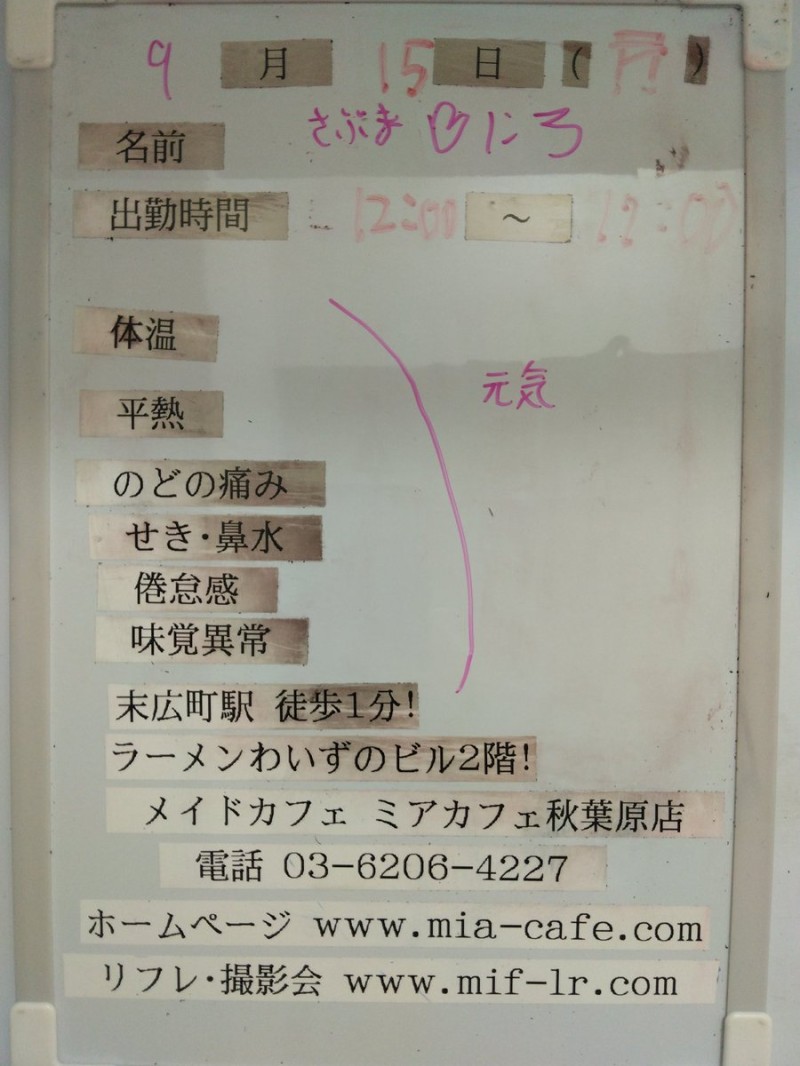 9 月 15 日 ( 月 )
名前 さぶま♡にろ
出勤時間 12:00 ～
体温
平熱
元気
のどの痛み
せき・鼻水
倦怠感
味覚異常
末広町駅 徒歩1分!
ラーメンわいずのビル2階!
メイドカフェ ミアカフェ秋葉原店
電話 03-6206-4227
ホームページ www.mia-cafe.com
リフレ・撮影会 www.mif-lr.com